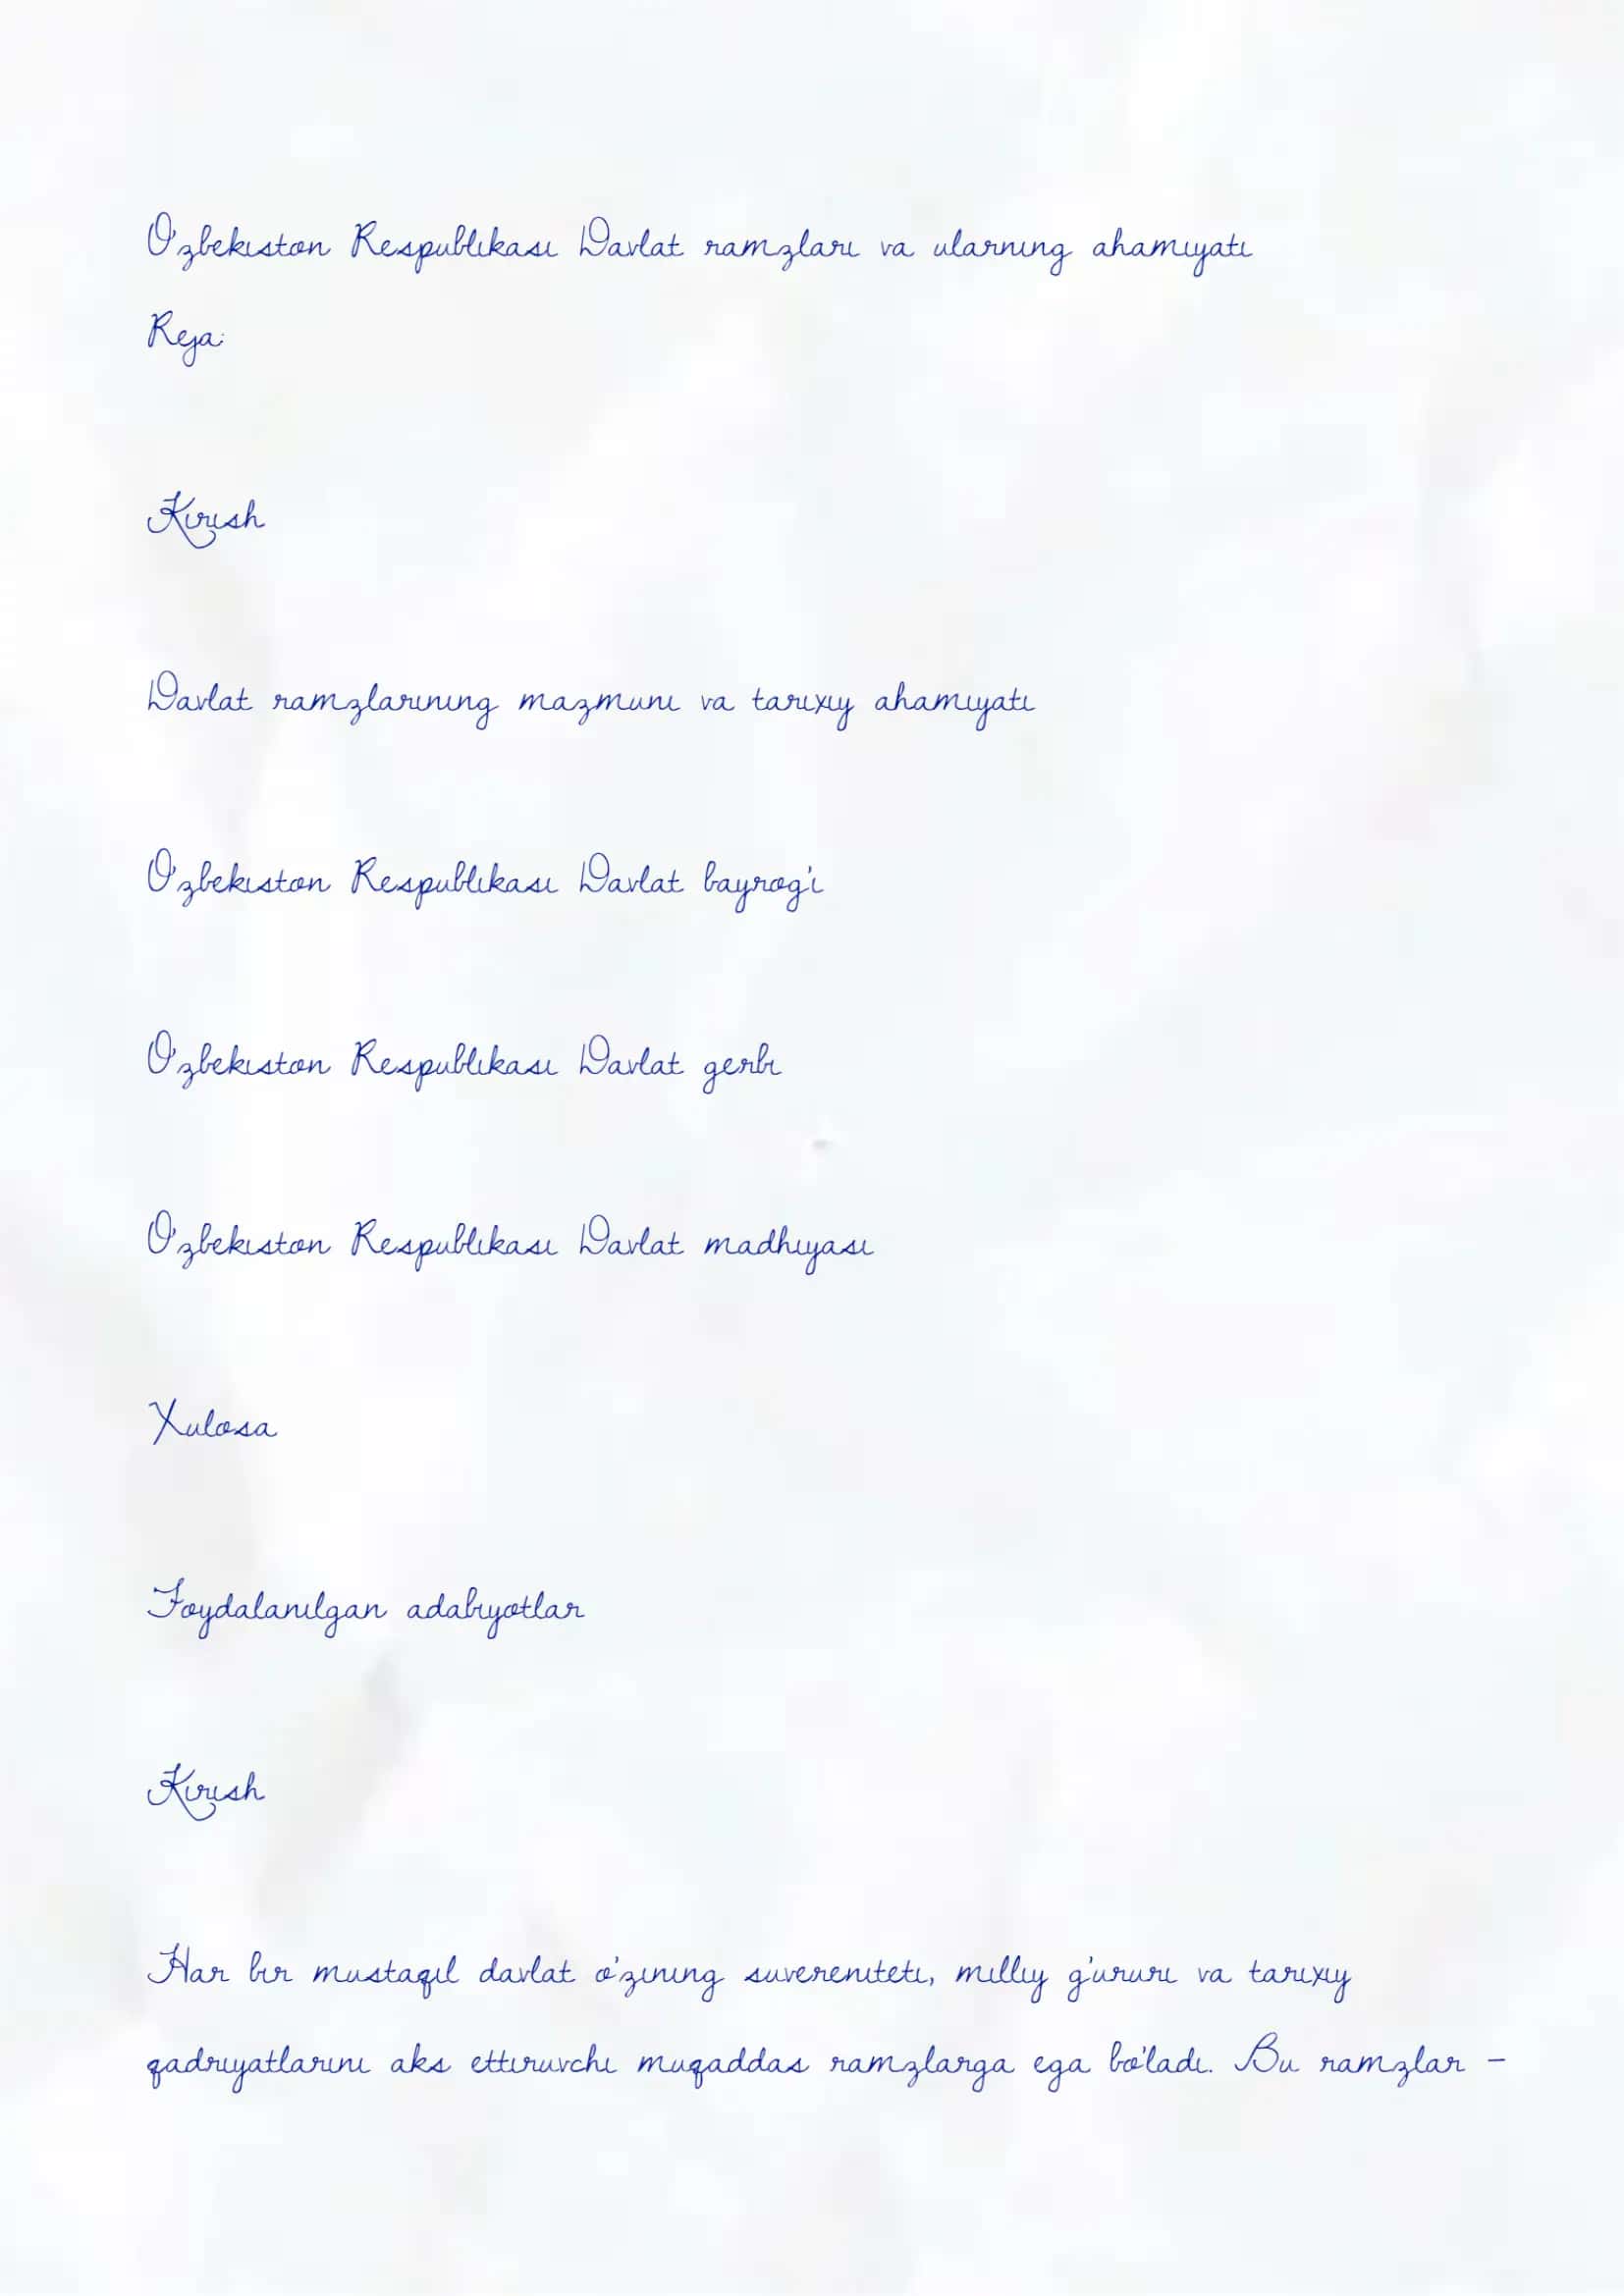 O'zbekiston Respublikasi Davlat ramzlari va ularning ahamiyati
Reja:
Kirish
Davlat ramzlarining mazmuni va tarixiy ahamiyati
O'zbekiston Respublikasi Davlat bayrog'i
O'zbekiston Respublikasi Davlat gerbi
O'zbekiston Respublikasi Davlat madhiyasi
Xulosa
Foydalanilgan adabiyotlar
Kirish
Har bir mustaqil davlat o'zining suvereniteti, milliy g'ururi va tarixiy
qadriyatlarini aks ettiruvchi muqaddas ramzlarga ega bo'ladi. Bu ramzlar –